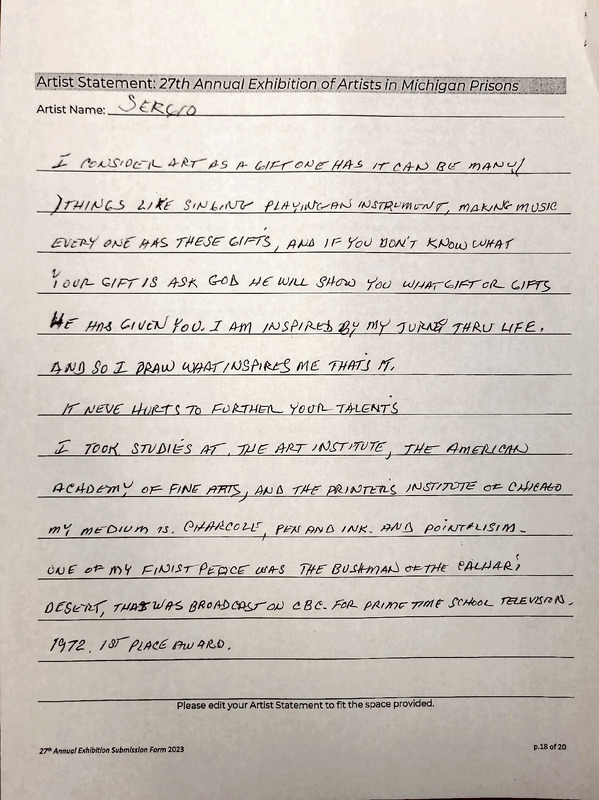 Artist Statement: 27th Annual Exhibition of Artists in Michigan Prisons
Artist Name: SERGIO
I CONSIDER ART AS A GIFT ONE HAS IT CAN BE MANY/
)THINGS LIKE SINGING PLAYING AN INSTRUMENT, MAKING MUSIC
EVERY ONE HAS THESE GIFT'S, AND IF YOU DON'T KNOW WHAT
YOUR GIFT IS ASK GOD HE WILL SHOW YOU WHAT GIFT OR GIFTS
HE HAS GIVEN YOU. I AM INSPIRED BY MY JURNY THRU LIFE.
AND SO I DRAW WHAT INSPIRES ME THAT'S IT.
IT NEVE HURTS TO FURTHER YOUR TALENT'S
I TOOK STUDIES AT. THE ART INSTITUTE, THE AMERICAN
ACADEMY OF FINE ARTS, AND THE PRINTER'S INSTITUTE OF CHICAGO
MY MEDIUM IS. CHARCOLE, PEN AND INK. AND POINTALISIM.
ONE OF MY FINIST PEACE WAS THE BUSHMAN OF THE CALHARI
DESERT, THAT WAS BROADCAST ON CBC. FOR PRIME TIME SCHOOL TELEVISION.
1972. 1ST PLACE AWARD.
Please edit your Artist Statement to fit the space provided.
27th Annual Exhibition Submission Form 2023
p.18 of 20